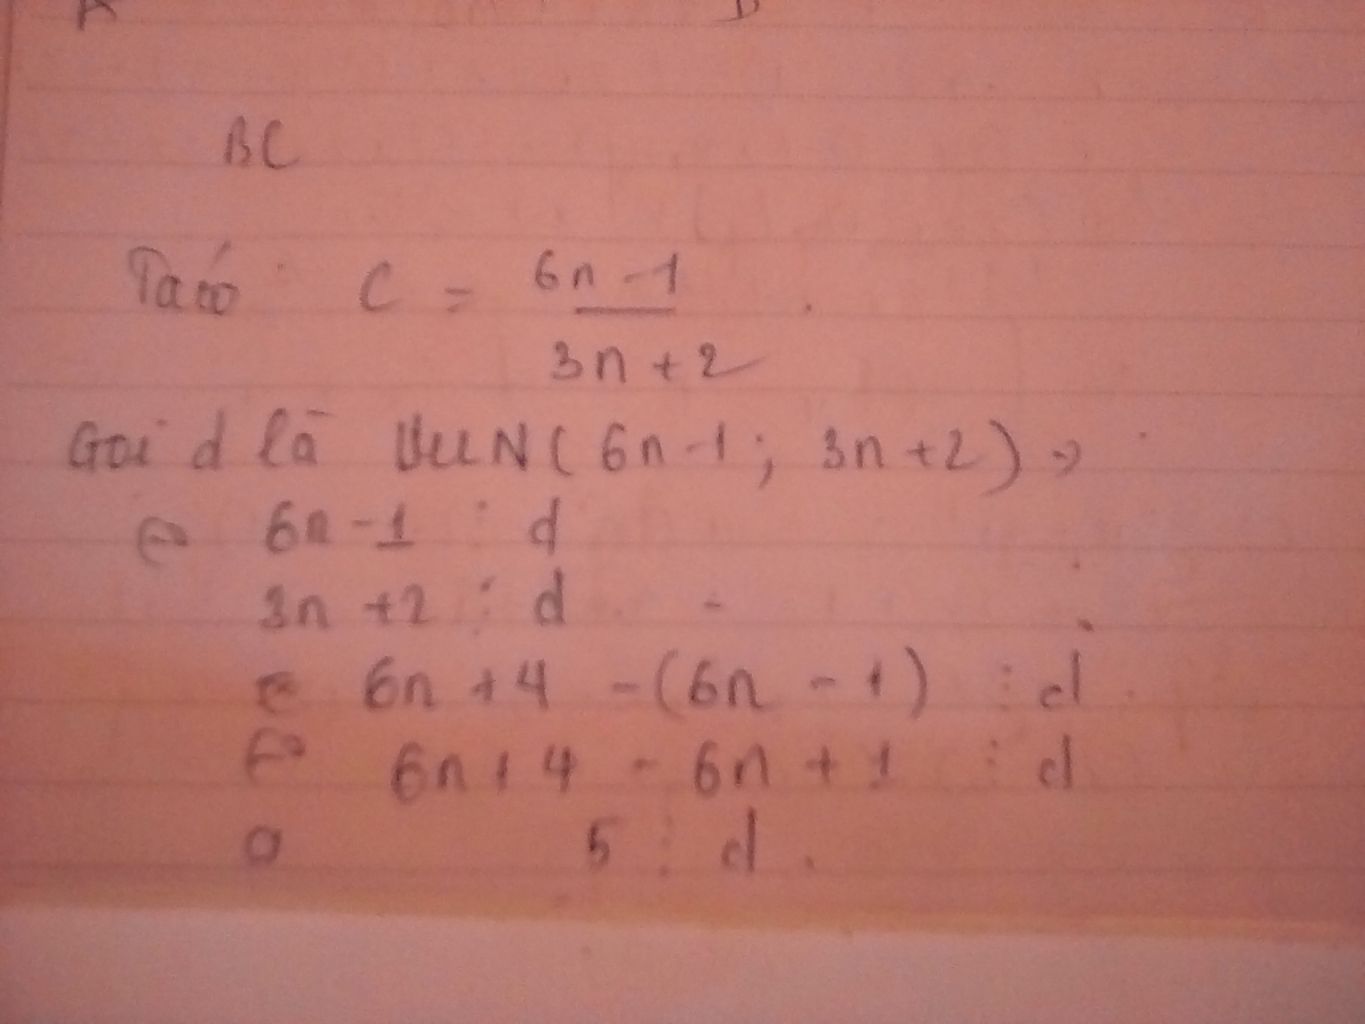 BC
Ta có C = 6n - 1
3n + 2
Gọi d là ƯCLN( 6n - 1 ; 3n + 2 ) =>
<=> 6n - 1 ⋮ d
3n + 2 ⋮ d
<=> 6n + 4 - (6n - 1) ⋮ d
<=> 6n + 4 - 6n + 1 ⋮ d
5 ⋮ d .